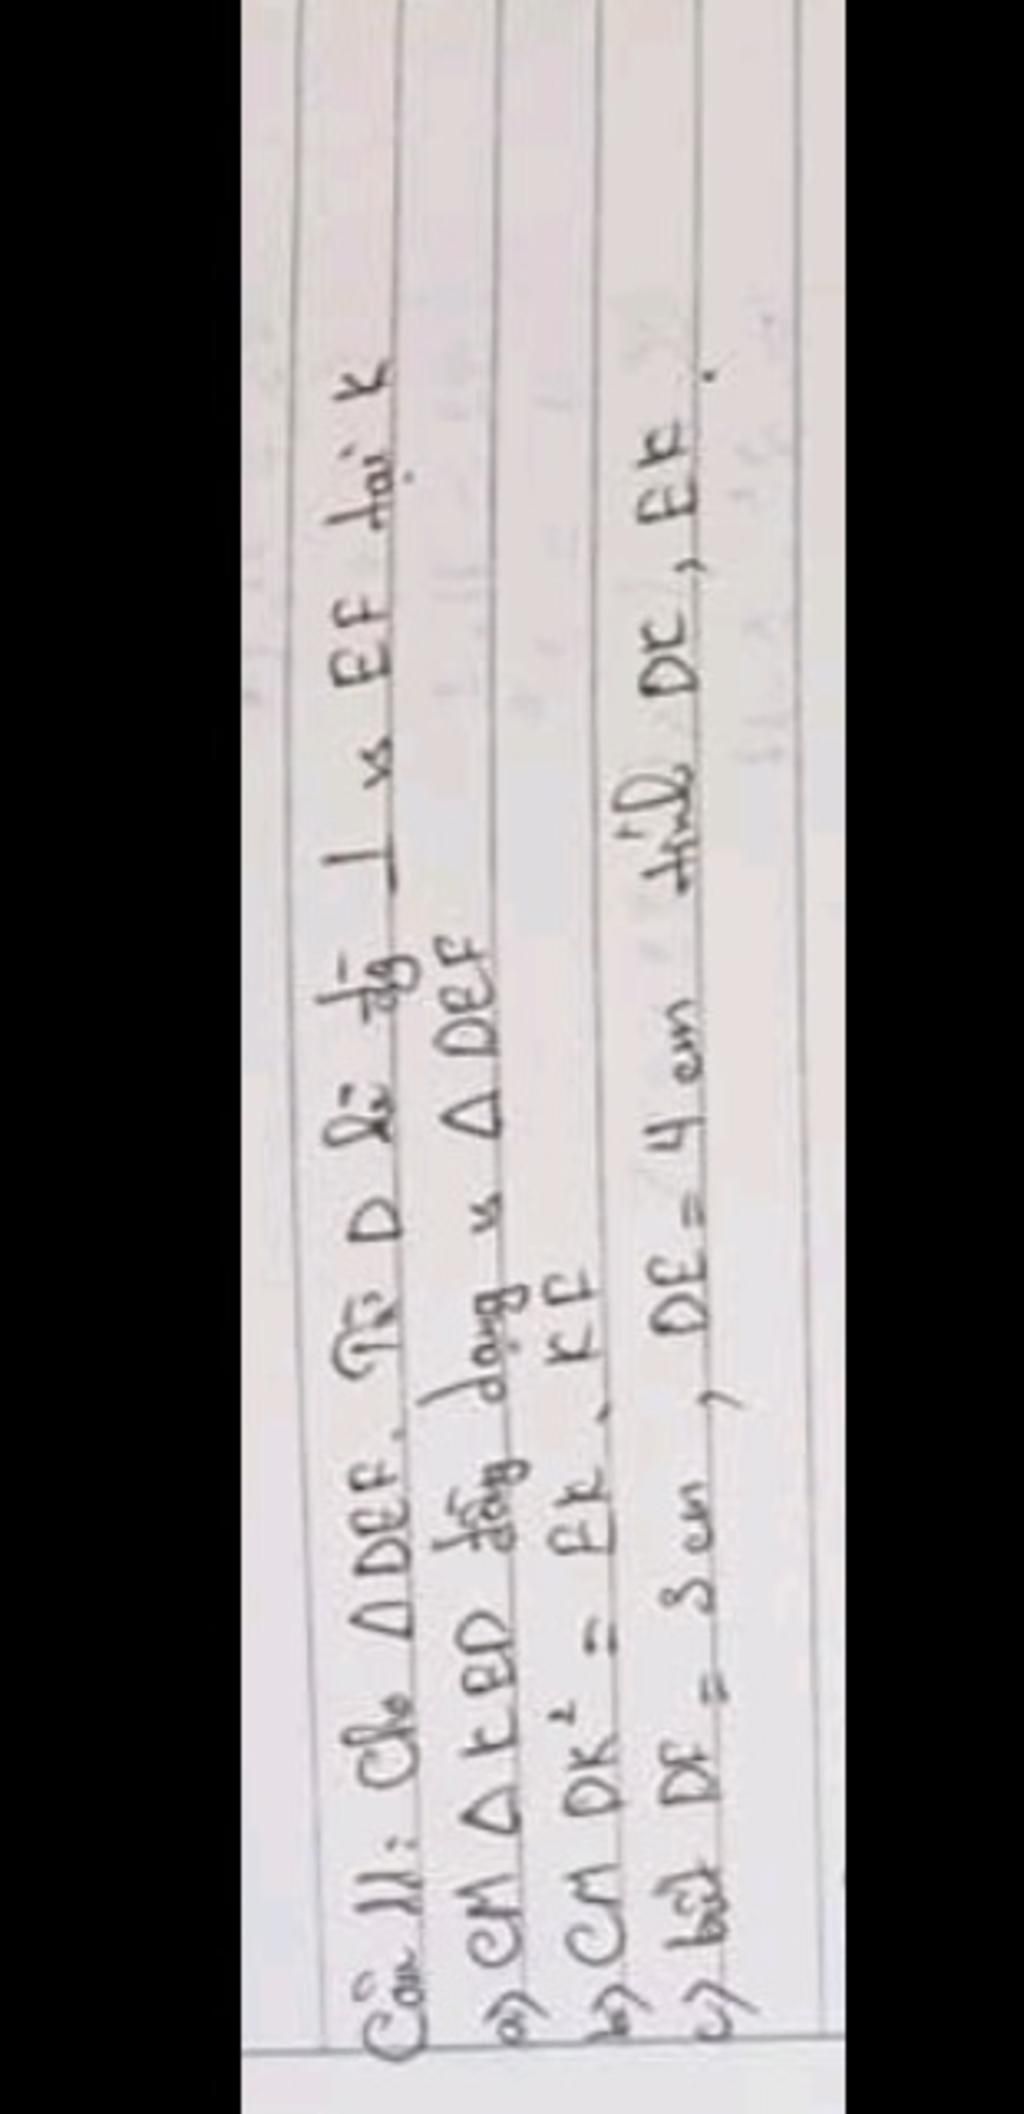 Câu 11: Cho Δ DEF. Từ D kẻ đg ⊥ vs EF tại K
a) CM Δ KED đồng dạng vs Δ DEF
b) CM DK² = EK . KF
c) biết DF = 3 cm, DE = 4 cm tính DK, EK.